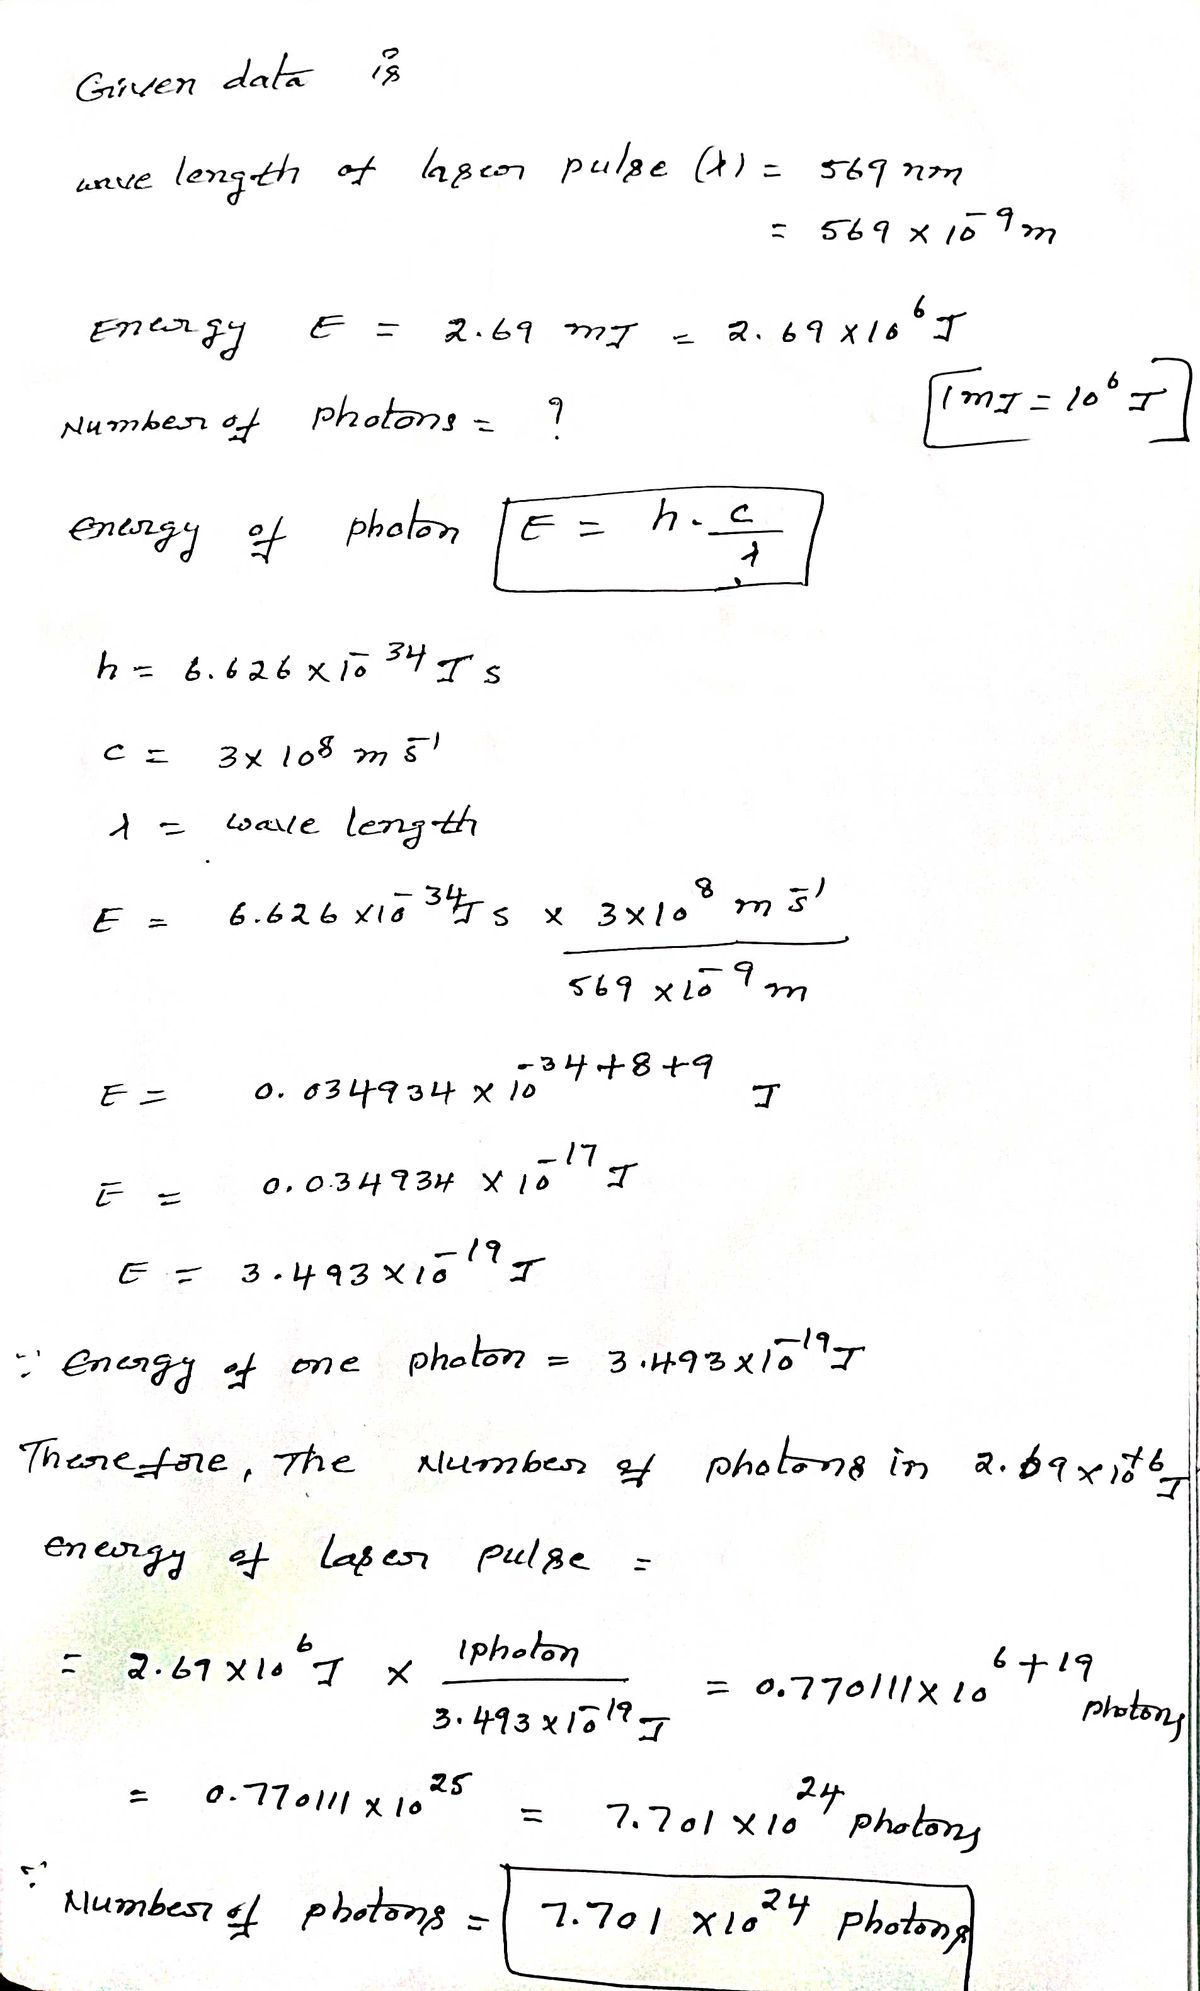 Given data is
wave length of laser pulse (λ) = 569 nm
= 569 × 10⁻⁹ m
Energy E = 2.69 mJ = 2.69 × 10⁶ J
[1mJ = 10⁶ J]
Number of photons = ?
energy of photon E = h · c/λ
h = 6.626 × 10⁻³⁴ J s
c = 3 × 10⁸ m s⁻¹
λ = wave length
E = 6.626 × 10⁻³⁴ J s × 3 × 10⁸ m s⁻¹
569 × 10⁻⁹ m
E = 0.034934 × 10⁻³⁴⁺⁸⁺⁹ J
E = 0.034934 × 10⁻¹⁷ J
E = 3.493 × 10⁻¹⁹ J
∵ Energy of one photon = 3.493 × 10⁻¹⁹ J
Therefore, The Number of photons in 2.69 × 10⁺⁶ J
energy of laser pulse =
= 2.69 × 10⁶ J × 1photon / 3.493 × 10⁻¹⁹ J = 0.770111 × 10⁶⁺¹⁹ photons
= 0.770111 × 10²⁵ = 7.701 × 10²⁴ photons
∵ Number of photons = 7.701 × 10²⁴ photons